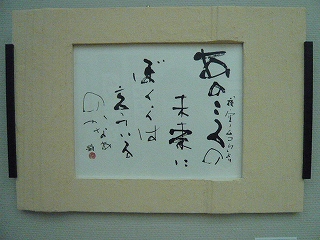 あのころの
未来に
ぼくらは
立っている
のかなぁ